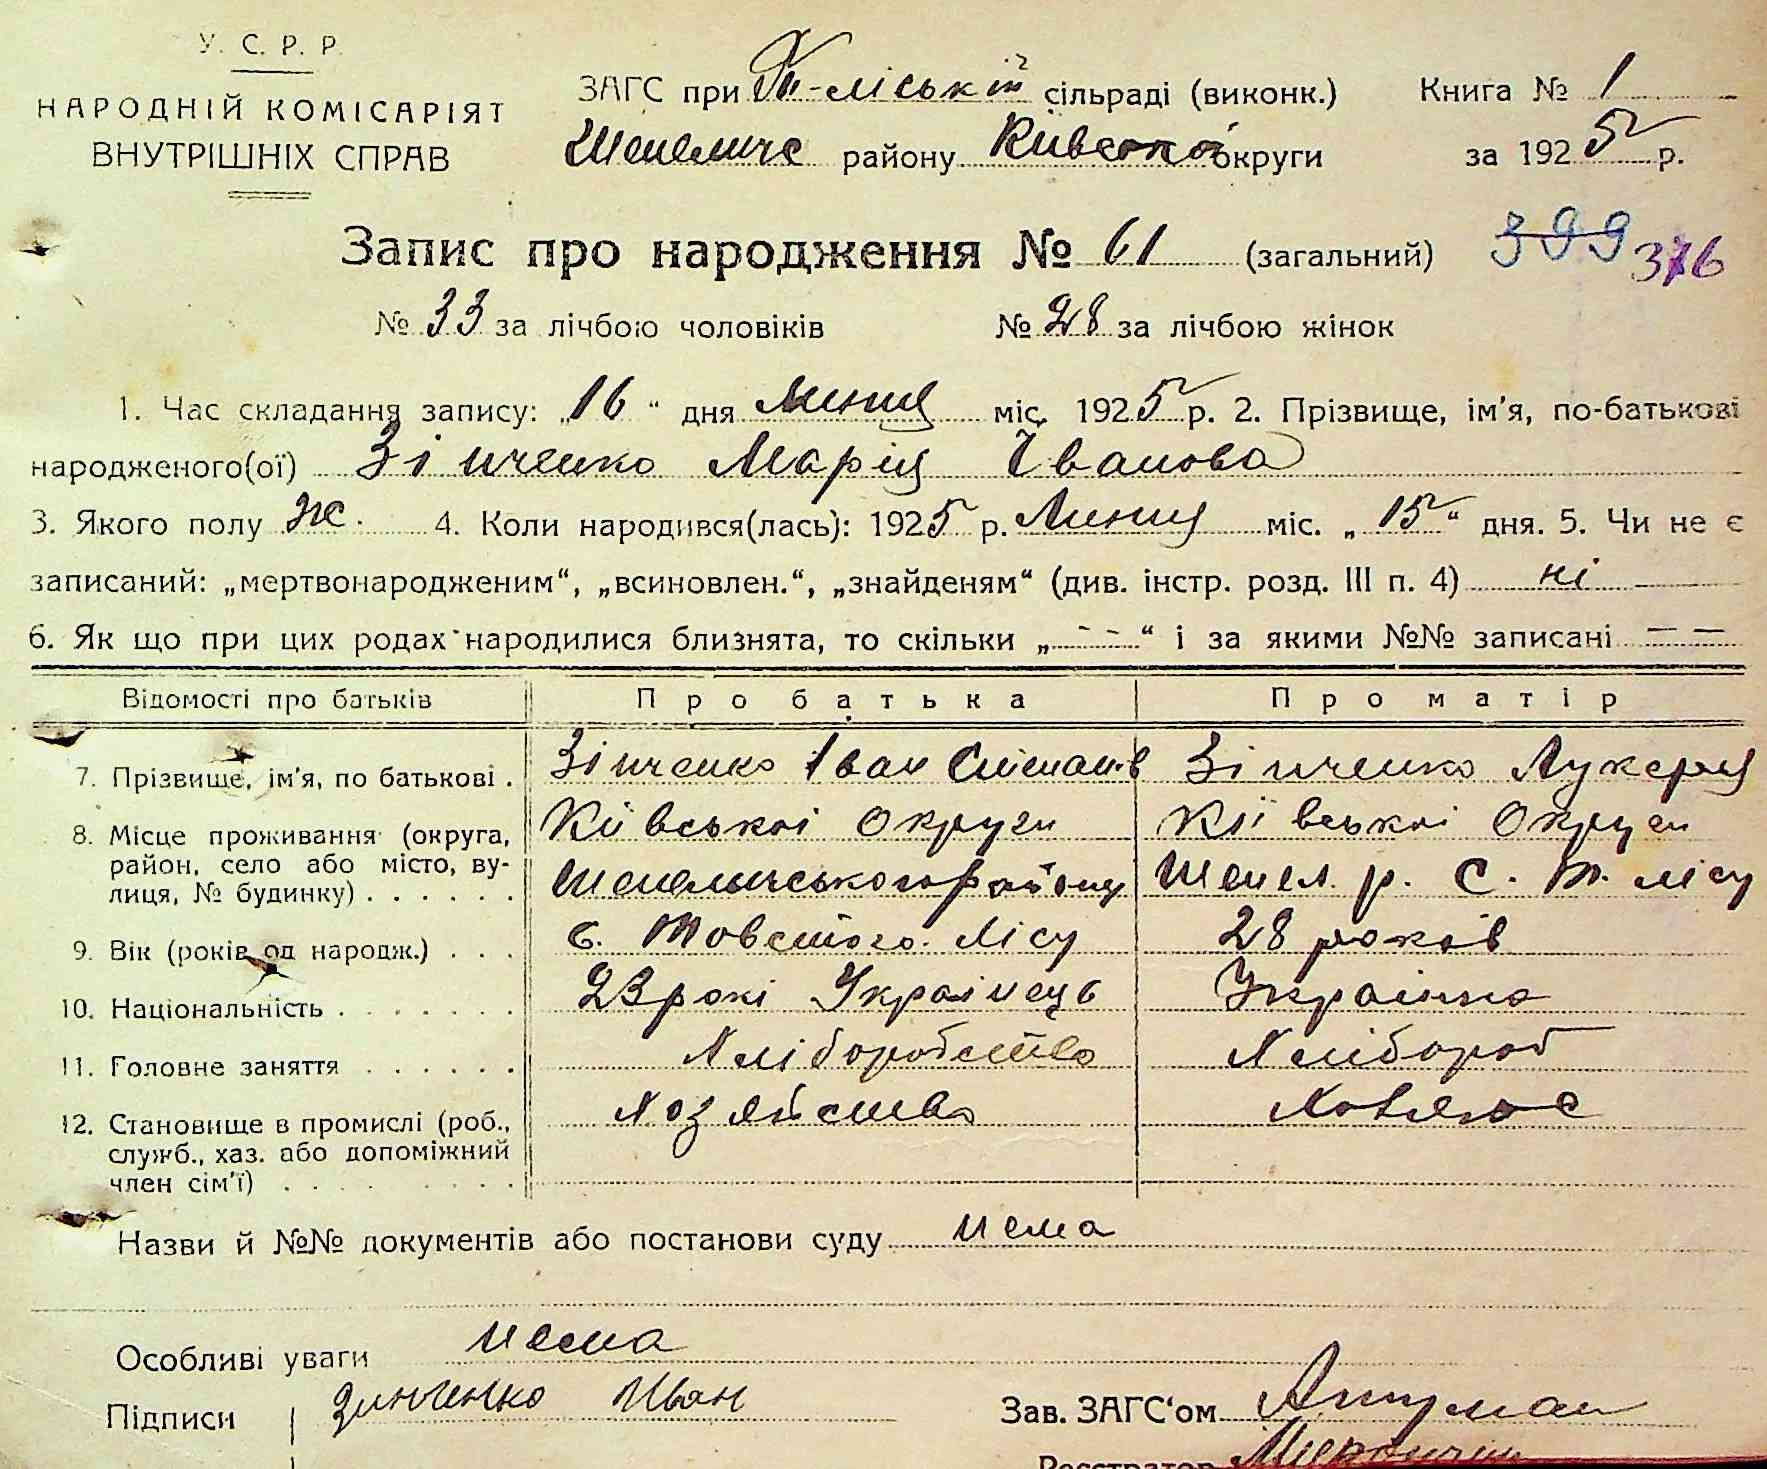 У. С. Р. Р.
НАРОДНІЙ КОМІСАРІЯТ
ВНУТРІШНІХ СПРАВ
ЗАГС при Т-ліській сільраді (виконк.)
Шепеличе району Київської округи
Книга № 1
за 1925 р.
Запис про народження № 61 (загальний) 399 376
№ 33 за лічбою чоловіків № 28 за лічбою жінок
1. Час складання запису: „16“ дня Липня міс. 1925 р. 2. Прізвище, ім'я, по-батькові
народженого(ої) Зінченко Марія Іванова
3. Якого полу ж. 4. Коли народився(лась): 1925 р. Липня міс. „15“ дня. 5. Чи не є
записаний: „мертвонародженим“, „всиновлен.“, „знайденям“ (див. інстр. розд. III п. 4) ні
6. Як що при цих родах народилися близнята, то скільки „- - -“ і за якими №№ записані — —
Відомості про батьків Про батька Про матір
7. Прізвище, ім'я, по батькові . Зінченко Іван Степанів Зінченко Лукерія
8. Місце проживання (округа, район, село або місто, вулиця, № будинку) . . . . . . Київської округи Київської Округи
Шепелическього району Шепел. р. С. Т. лісу
9. Вік (років од народж.) . . . с. Товстого. Лісу 28 років
10. Національність . . . . . . . 23 рокі Українець Українка
11. Головне заняття . . . . . . Хліборобство Хлібороб
12. Становище в промислі (роб., служб., хаз. або допоміжний член сім'ї) . . . . . . . . . Хозяйство
Назви й №№ документів або постанови суду нема
Особливі уваги нема
Підписи Зинченко Иван Зав. ЗАГС'ом
Реєстратор